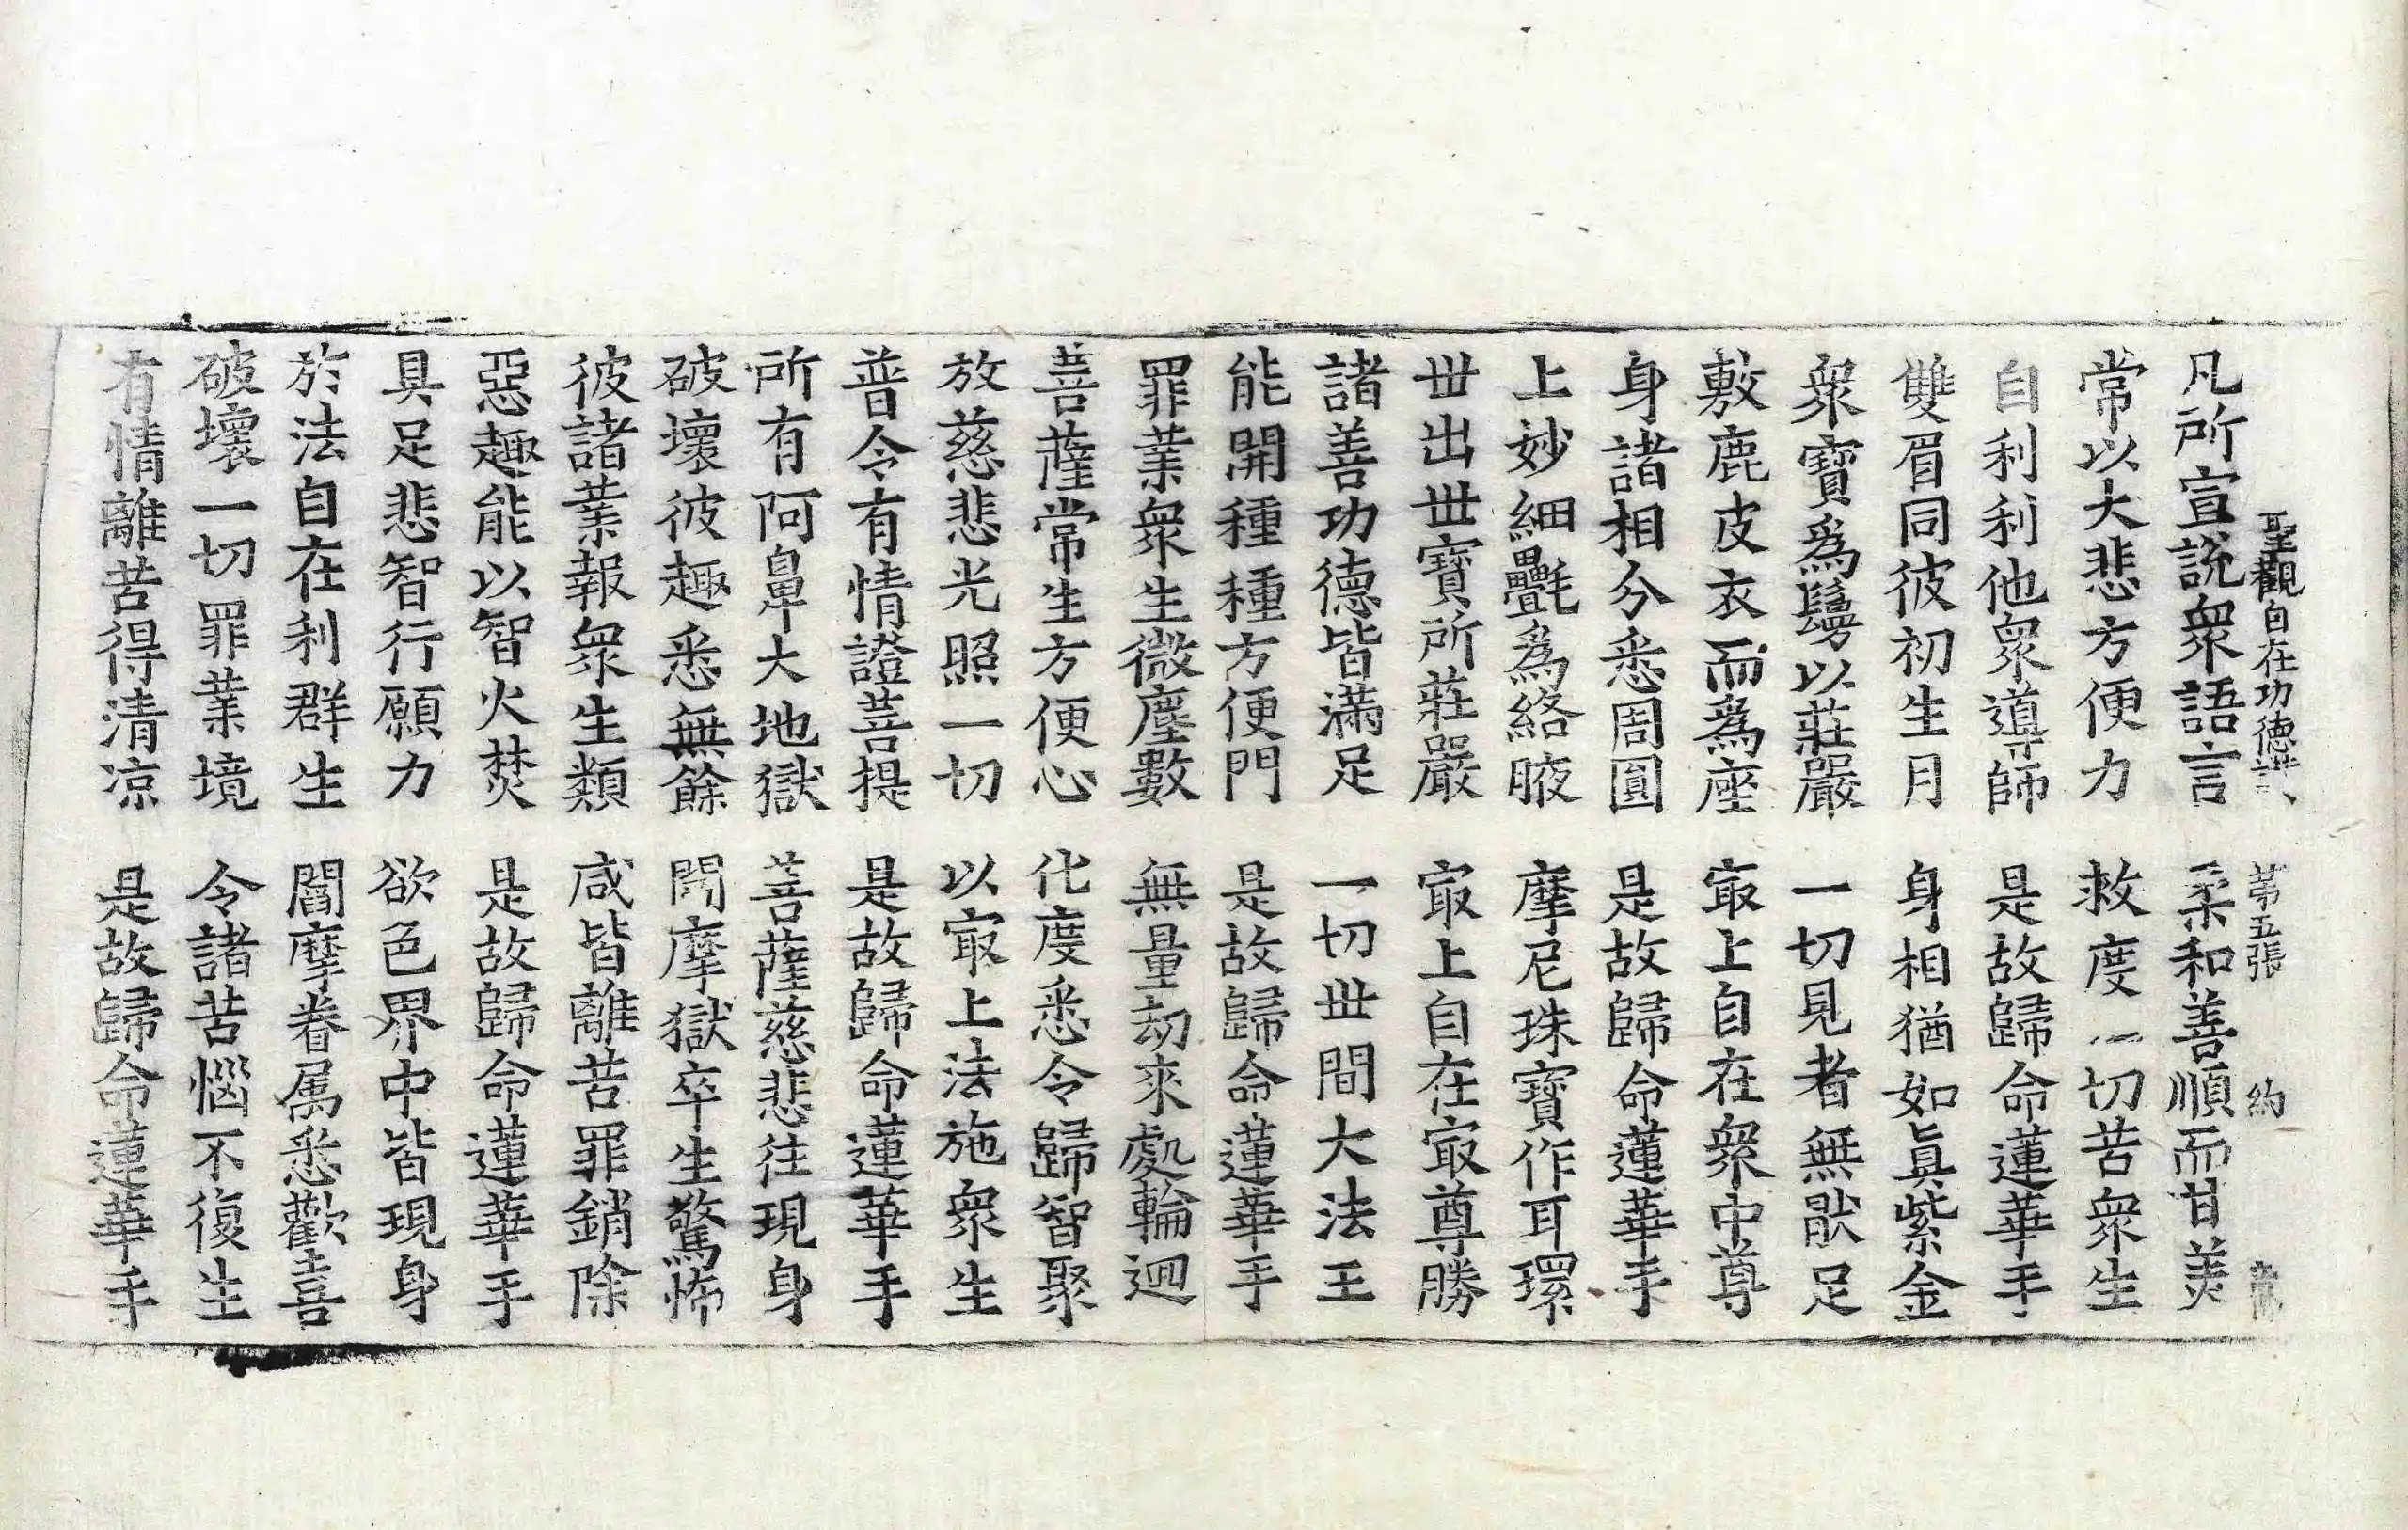 聖觀自在功德讃 第五張 約
凡所宣說衆語言 柔和善順而甘美
常以大悲方便力 救度一切苦衆生
自利利他衆導師 是故歸命蓮華手
雙眉同彼初生月 身相猶如眞紫金
衆寶爲鬘以莊嚴 一切見者無猒足
敷鹿皮衣而爲座 㝡上自在衆中尊
身諸相分悉周圓 是故歸命蓮華手
上妙細㲲爲絡腋 摩尼珠寶作耳環
丗出丗寶所莊嚴 㝡上自在㝡尊勝
諸善功德皆滿足 一切丗間大法王
能開種種方便門 是故歸命蓮華手
罪業衆生微塵數 無量劫來處輪迴
菩薩常生方便心 化度悉令歸智聚
放慈悲光照一切 以㝡上法施衆生
普令有情證菩提 是故歸命蓮華手
所有阿鼻大地獄 菩薩慈悲往現身
破壞彼趣悉無餘 閻摩獄卒生驚怖
彼諸業報衆生類 咸皆離苦罪銷除
惡趣能以智火焚 是故歸命蓮華手
具足悲智行願力 欲色界中皆現身
於法自在利群生 閻摩眷属悉歡喜
破壞一切罪業境 令諸苦惱不復生
有情離苦得清凉 是故歸命蓮華手